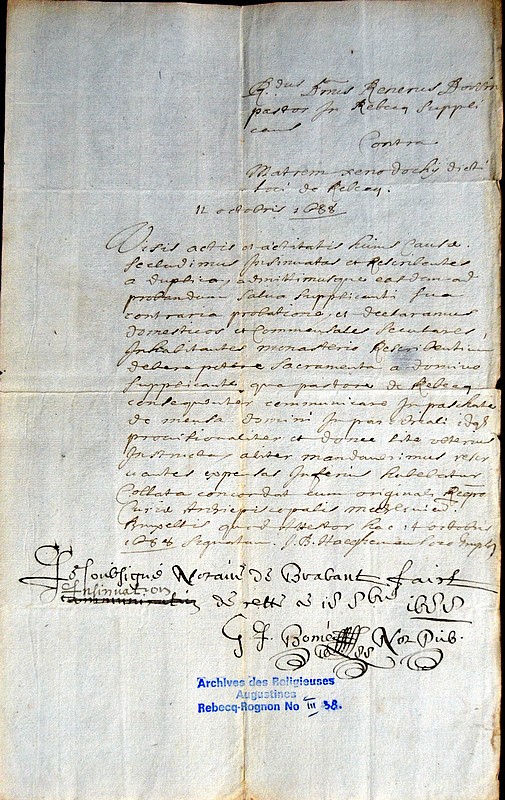 R.dus Dnus Renerus
pastor In Rebecq Suppli
cans
Contra
Matrem xenodochij dicti
loci de Rebecq.
12 octobris 1688
Visis actis et actitatis huius Causae
Secludimus Insinuatas et Rescribentes
a duplica, admittimusque easdem ad
probandum Salva Supplicanti sua
contraria probatione, et declaramus
domesticos et Commensales Seculares
Inhabitantes monasterio Rescribentium
debere petere Sacramenta a domino
Supplicante, que pastore de Rebecq
consequenter communicare In paschate
de mensa domini In parochiali idq
provisionaliter et donec lite ulterius
Instructa aliter mandaverimus reser
vantes expensas
Collata concordat cum originali
Curiae Archiepiscopalis
Bruxellis quod attestor hac 17 octobris
1688 Signatum. J. B.
Le soubsigné Notaire de Brabant faict
Insinuation
de cette a 18 8bre 1688
G J. Not Pub.
1688
Archives des Religieuses
Augustines
Rebecq-Rognon No III 38.